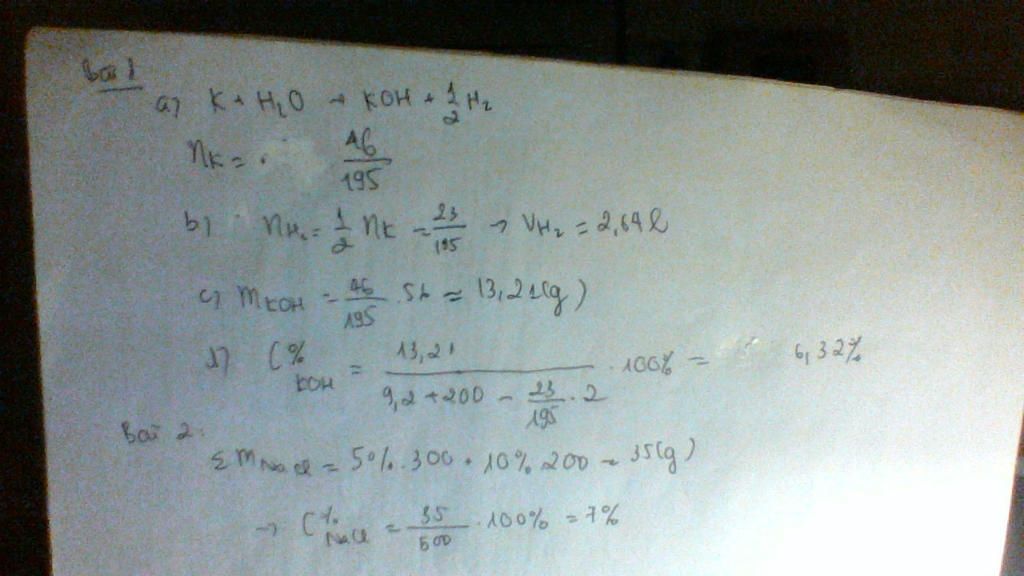 Bài 1
a) K + H₂O → KOH + 1/2 H₂
nK = 46/195
b) nH₂ = 1/2 nK = 23/195 → VH₂ = 2,64 l
c) mKOH = 46/195 . 56 = 13,21 (g)
d) C%KOH = 13,21/(9,2 + 200 - 23/195 . 2) . 100% = 6,32%
Bài 2:
Σ mNaCl = 5% . 300 + 10% . 200 = 35 (g)
→ C%NaCl = 35/500 . 100% = 7%